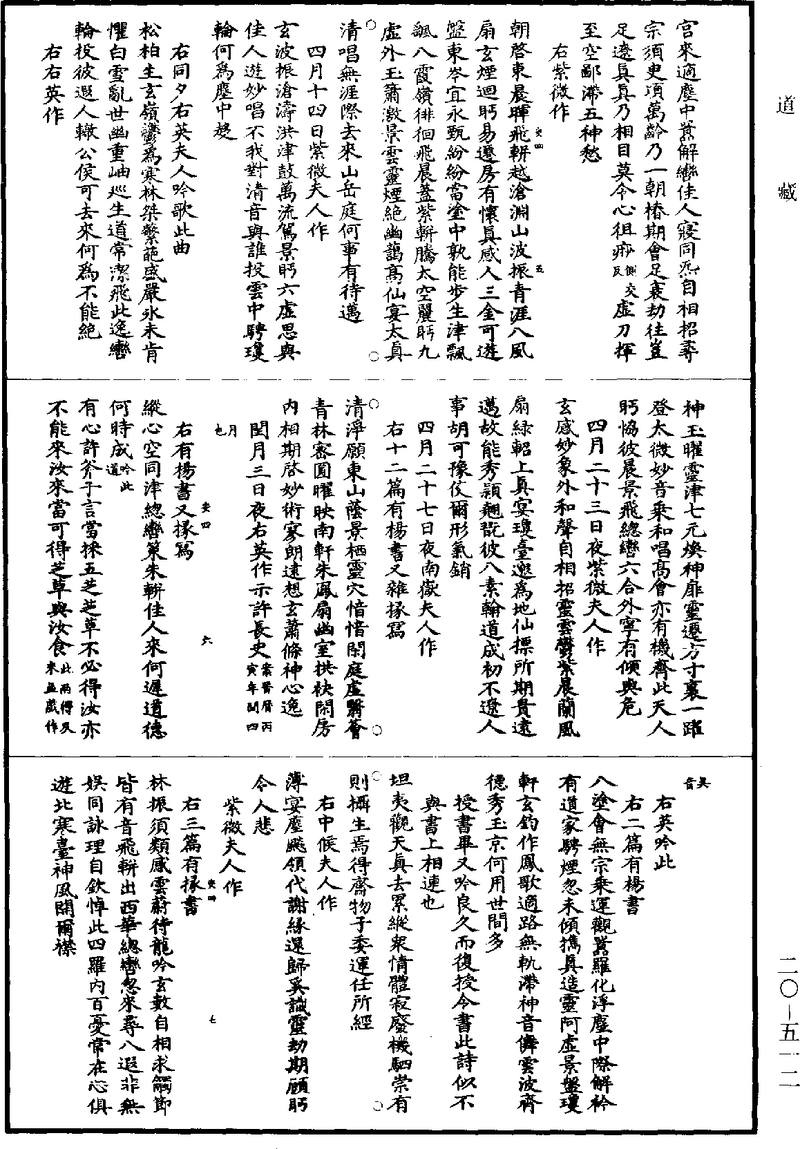 道藏
宮來適塵中囂解轡佳人寢同炁自相招尋
宗須臾頃萬齡乃一朝椿期會足衰劫往豈
足遼真真乃相目莫令心徂痧側交反虛刀揮
至空鄙滯五神愁
右紫微作
朝啓東晨暉飛軿越滄淵山波振青涯八風
扇玄煙迴眄易遷房有懷真感人三金可遊
盤東岑宜永甄紛紛當塗中孰能步生津飄
飄八霞嶺徘徊飛晨蓋紫軿騰太空麗眄九
虛外玉簫激景雲靈煙絕幽藹高仙宴太真
清唱無涯際去來山岳庭何事有待邁
四月十四日紫微夫人作
玄波振滄濤洪津鼓萬流駕景眄六虛思與
佳人遊妙唱不我對清音與誰投雲中騁瓊
輪何為塵中趍
右同夕右英夫人吟歌此曲
松柏生玄嶺鬱為寒林桀繁葩盛嚴氷未肯
懼白雪亂世幽重岫巡生道常潔飛此逸轡
輪投彼遐人轍公侯可去來何為不能絕
右右英作
神玉曜靈津七元煥神扉靈遷方寸裏一躍
登太微妙音乘和唱高會亦有機齊此天人
眄恊彼晨景飛總轡六合外寧有傾與危
四月二十三日夜紫微夫人作
玄感妙象外和聲自相招靈雲鬱紫晨蘭風
扇綠軺上真宴瓊臺邈為地仙標所期貴遠
邁故能秀穎翹翫彼八素翰道成初不遼人
事胡可豫仗爾形氣銷
四月二十七日夜南嶽夫人作
右十二篇有楊書又雜掾寫
清淨願東山蔭景栖靈穴愔愔閑庭虛翳薈
青林密圓曜映南軒朱鳳扇幽室拱袂閑房
內相期啓妙術寥朗遠想玄蕭條神心逸
閏月三日夜右英作示許長史案晉曆丙寅年閏四
月也
右有楊書又掾寫
縱心空同津總轡策朱軿佳人來何遲道德
何時成吟此道
有心許斧子言當採五芝芝草不必得汝亦
不能來汝來當可得芝草與汝食此兩得及來並戲作
吴音
右英吟此
右二篇有楊書
八塗會無宗乘運觀囂羅化浮塵中際解衿
有道家騁煙忽未傾攜真造靈阿虛景盤瓊
軒玄鈞作鳳歌適路無軌滯神音儛雲波齊
德秀玉京何用世間多
授書畢又吟良久而復授令書此詩似不
與書上相連也
坦夷觀天真去累縱衆情體寂廢機駟崇有
則攝生焉得齋物子委運任所經
右中候夫人作
薄宴塵飈領代謝緣還歸奚識靈劫期顧眄
令人悲
紫微夫人作
右三篇有掾書
林振須類感雲蔚待龍吟玄數自相求觸節
皆有音飛軿出西華總轡忽來尋八遐非無
娛同詠理自欽悼此四羅內百憂常在心俱
遊北寒臺神風開爾襟
二〇-五一二